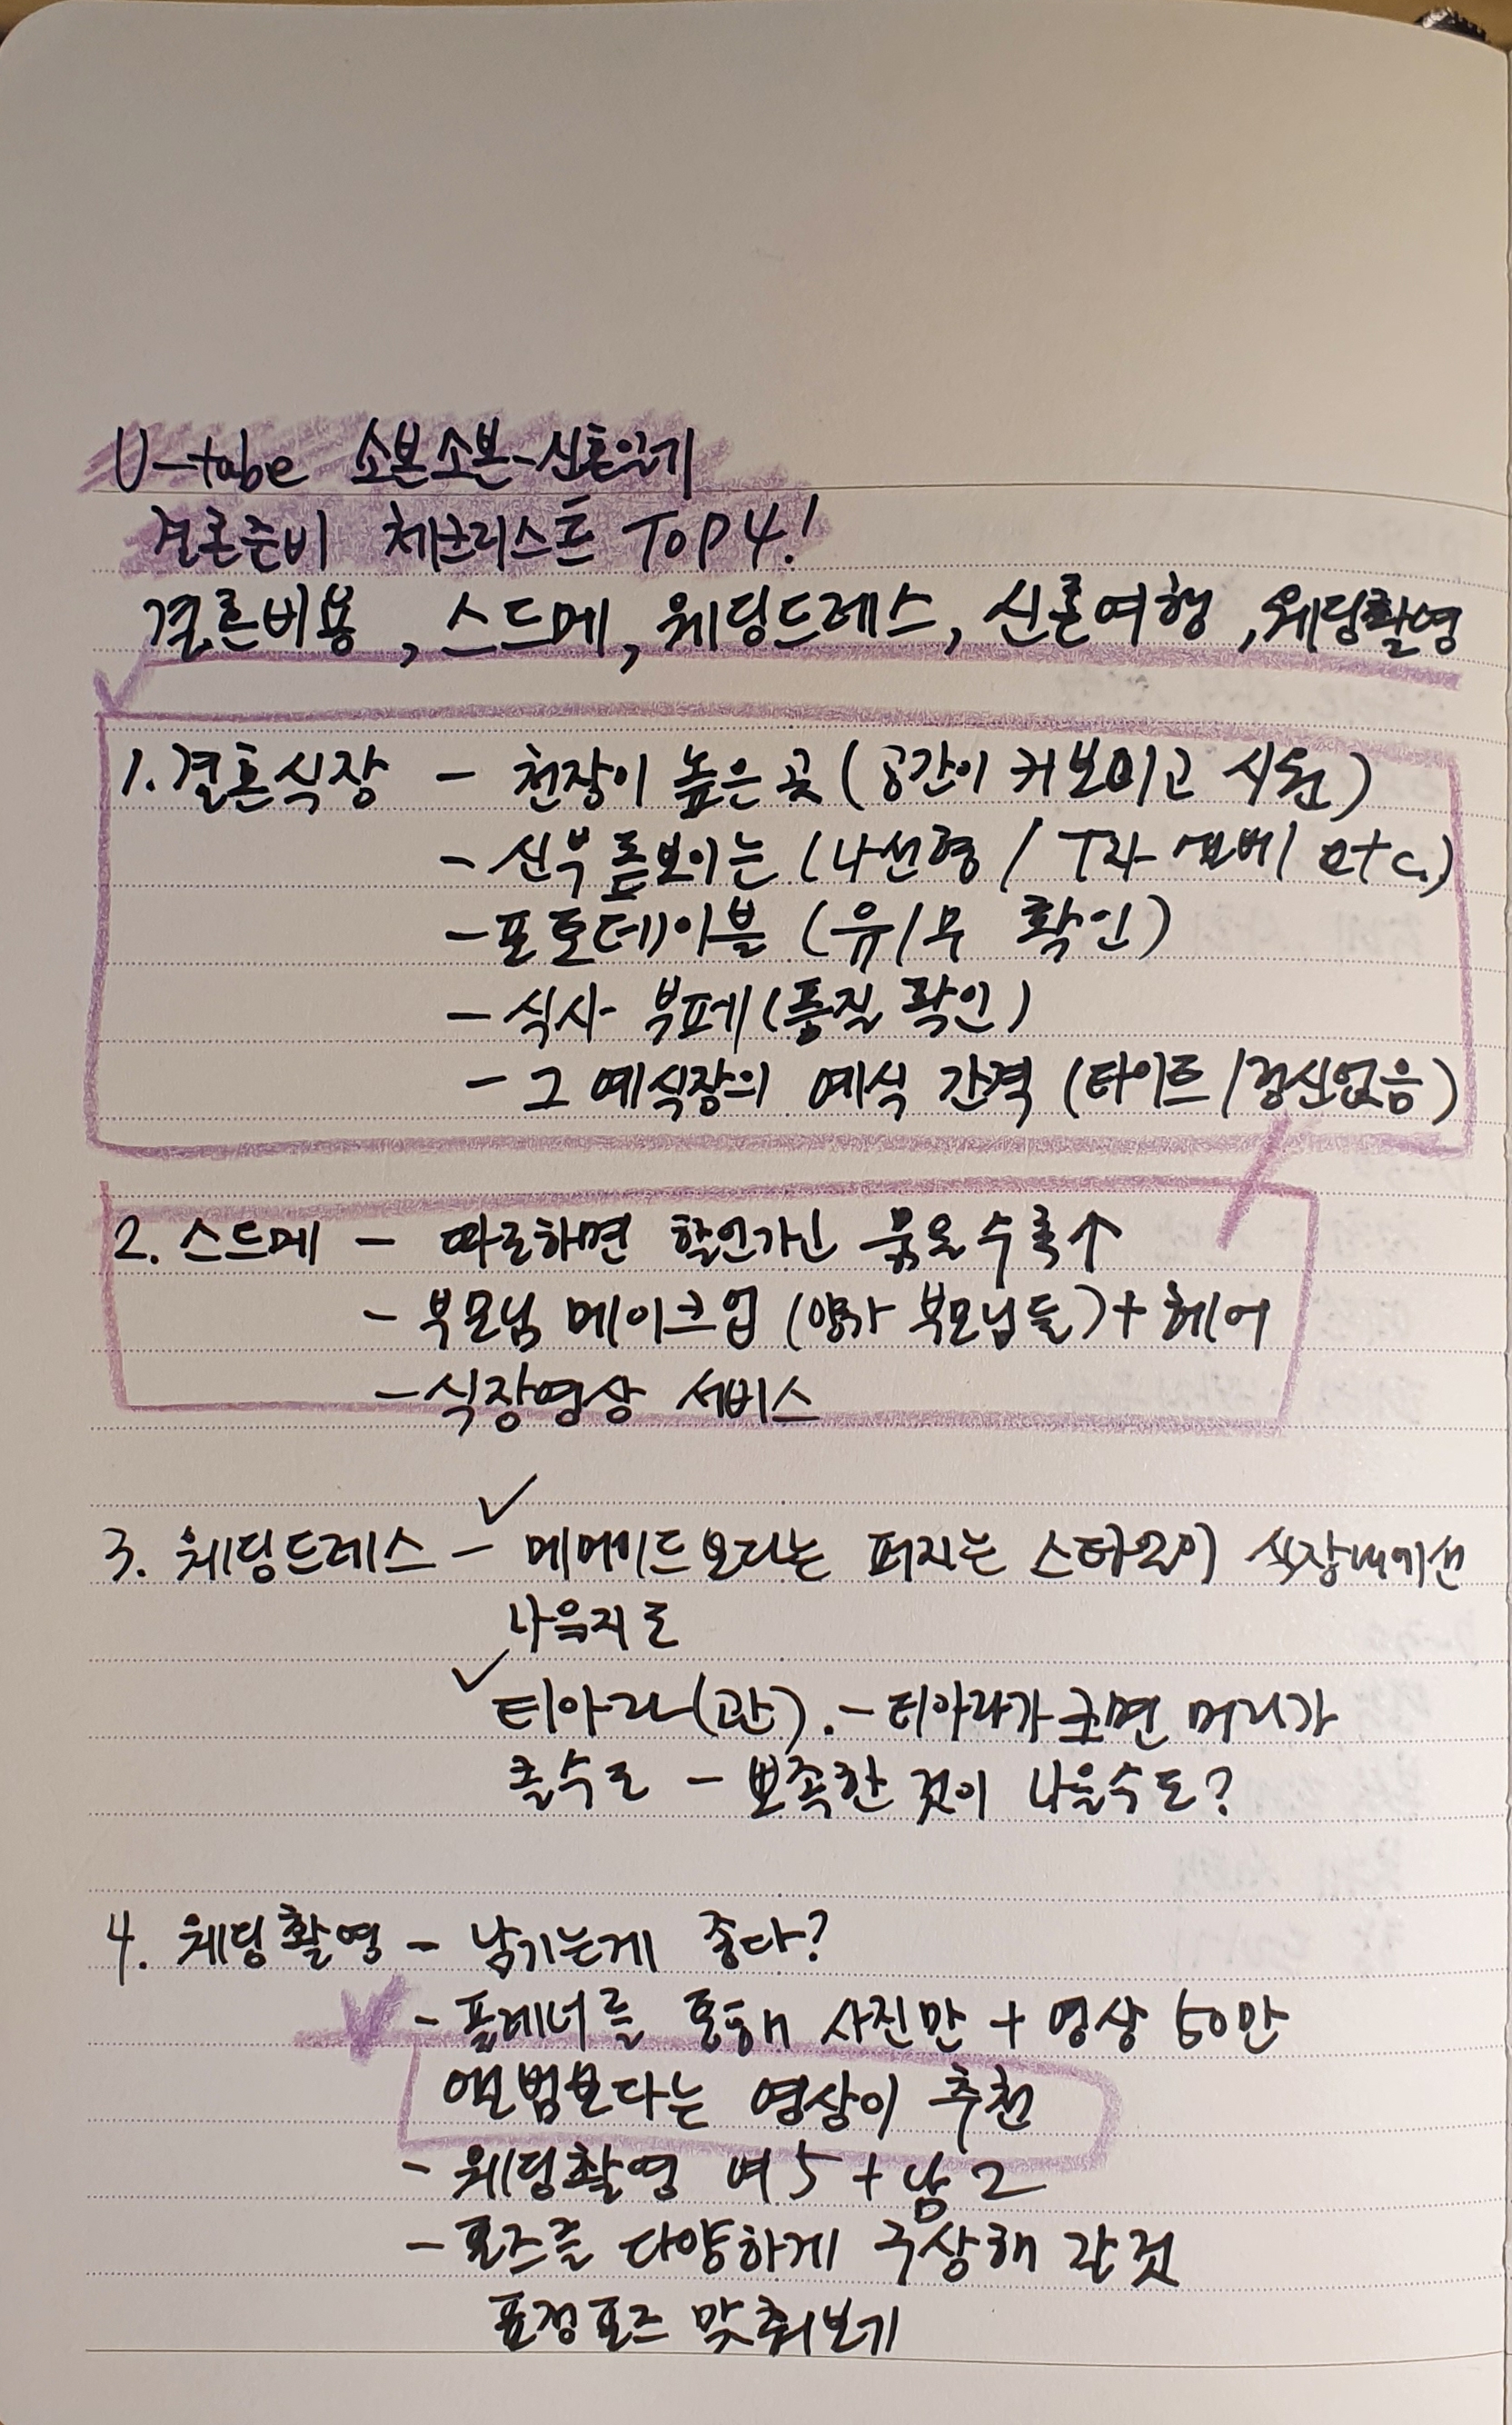 U-tube 소본소본-신혼일기
결혼준비 체크리스트 TOP 4!
결혼비용, 스드메, 웨딩드레스, 신혼여행, 웨딩촬영
1. 결혼식장 - 천장이 높은 곳 (공간이 커보이고 시원)
- 신부 돋보이는 (나선형 / T자 etc.)
- 포토테이블 (유/무 확인)
- 식사 부페 (품질 확인)
- 그 예식장의 예식 간격 (타이트/정신없음)
2. 스드메 - 따로하면 할인가닌 묶을수록↑
- 부모님 메이크업 (양가 부모님들) + 헤어
- 식장영상 서비스
3. 웨딩드레스 - 메메이드보다는 퍼지는 스타일이 식장내에선
나을지도
티아라(관). - 티아라가 크면 머리가
클수도 - 뾰족한 것이 나을수도?
4. 웨딩촬영 - 남기는게 좋다?
- 플래너를 통해 사진만 + 영상 50만
앨범보다는 영상이 추천
- 웨딩촬영 여5 + 남2
- 포즈를 다양하게 구상해 갈것
표정포즈 맞춰보기